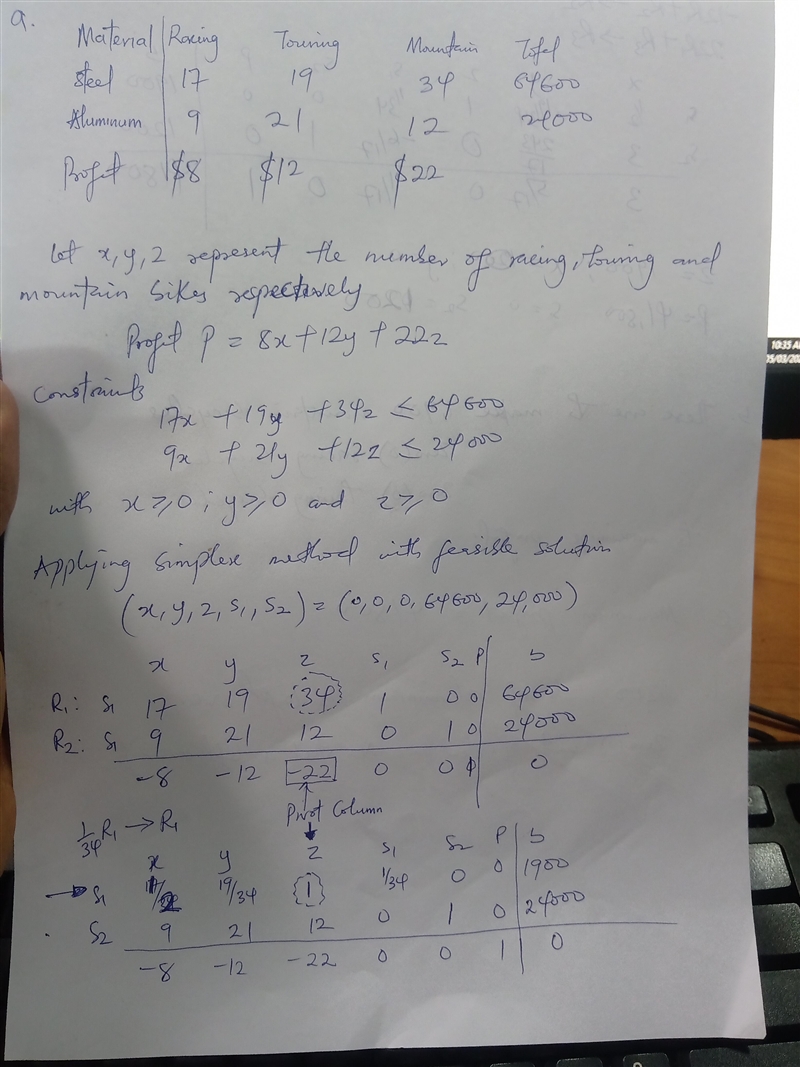 a.
Material Racing Touring Mountain Total
Steel 17 19 34 64600
Aluminum 9 21 12 24000
Profit $8 $12 $22
Let x, y, z represent the number of racing, touring and
mountain bikes respectively
Profit P = 8x + 12y + 22z
Constraints
17x + 19y + 34z ≤ 64600
9x + 21y + 12z ≤ 24000
with x ≥ 0 ; y ≥ 0 and z ≥ 0
Applying simplex method with feasible solution
(x, y, z, s₁, s₂) = (0, 0, 0, 64600, 24,000)
x y z s₁ s₂ P b
R₁: s₁ 17 19 34 1 0 0 64600
R₂: s₁ 9 21 12 0 1 0 24000
-8 -12 -22 0 0 1 0
Pivot Column
1/34 R₁ → R₁
x y z s₁ s₂ P b
→ s₁ 19/34 1 1/34 0 0 1900
s₂ 9 21 12 0 1 0 24000
-8 -12 -22 0 0 1 0
10:35 A
05/03/202